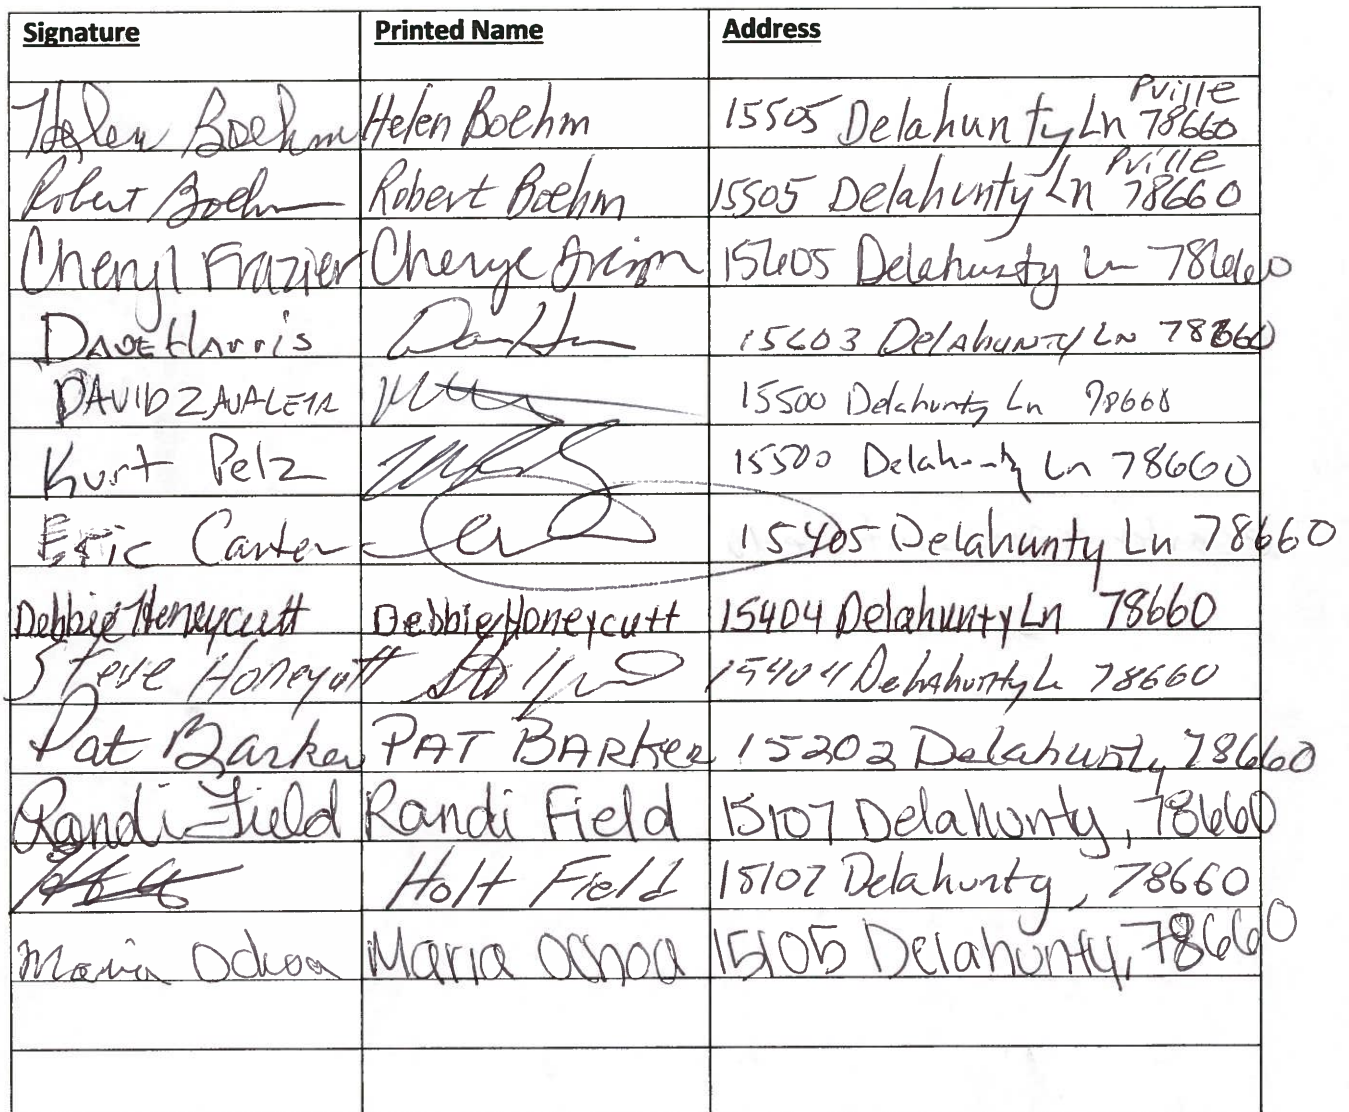 Signature Printed Name Address
Helen Boehm Helen Boehm 15505 Delahunty Ln Pville 78660
Robert Boehm Robert Boehm 15505 Delahunty Ln Pville 78660
Cheryl Frazier Cheryl 15605 Delahunty Ln 78660
Dave Harris 15603 Delahunty Ln 78660
DAVID ZAVALETA 15500 Delahunty Ln 78660
Kurt Pelz 15500 Delahunty Ln 78660
Eric Carter 15405 Delahunty Ln 78660
Debbie Honeycutt Debbie Honeycutt 15404 Delahunty Ln 78660
Steve Honeycutt 15404 Delahunty Ln 78660
Pat Barker PAT BARKER 15202 Delahunty 78660
Randi Field Randi Field 15107 Delahunty, 78660
Holt Field 15107 Delahunty, 78660
Maria Ochoa Maria Ochoa 15105 Delahunty, 78660